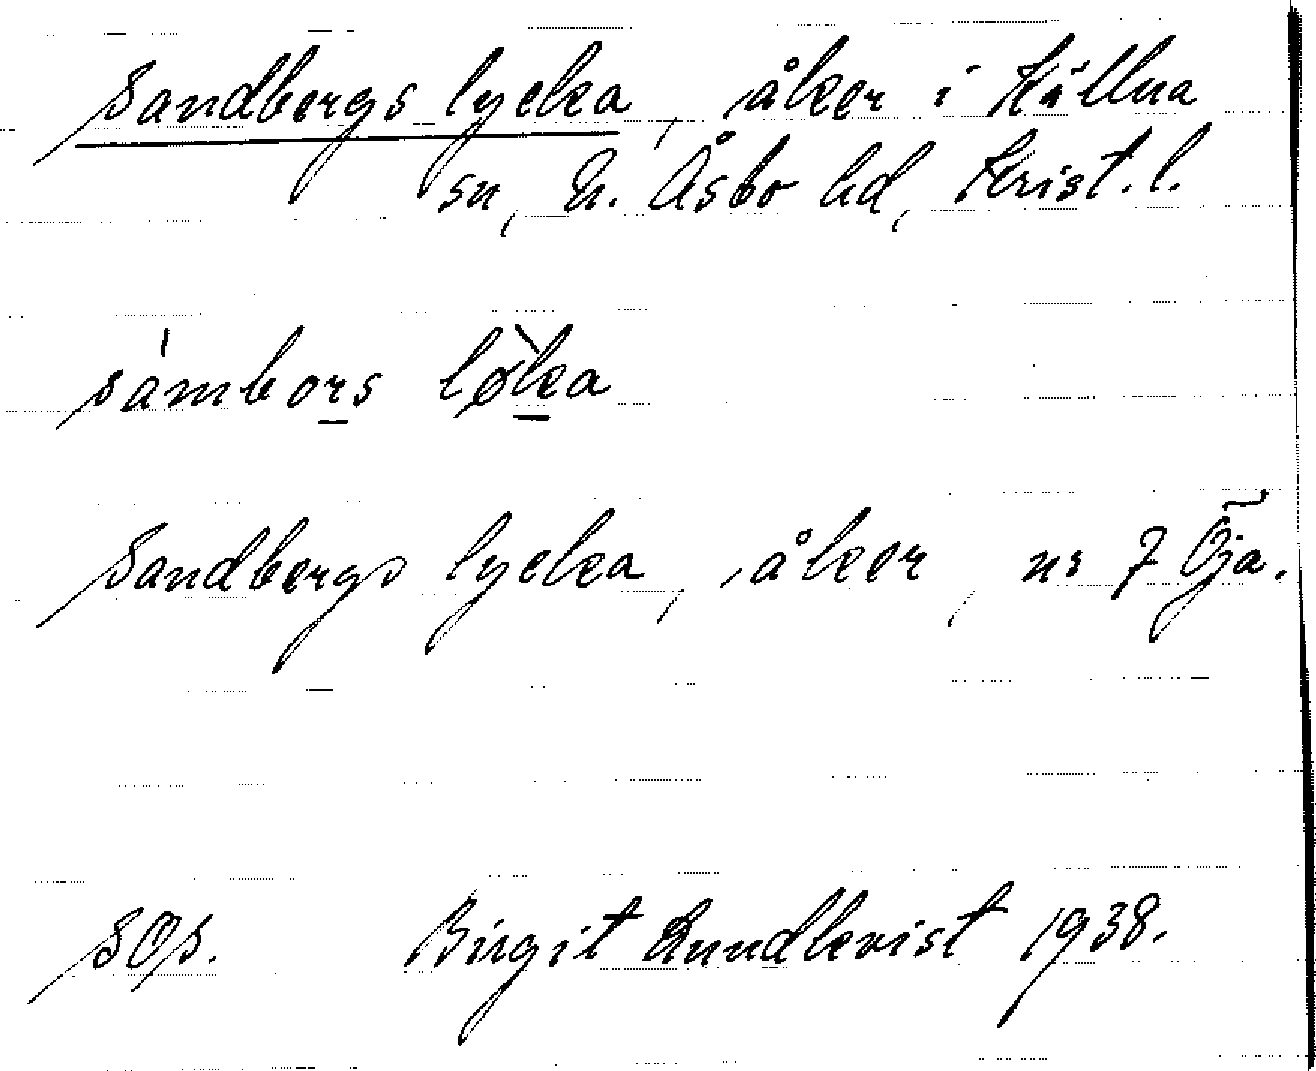 Sandbergs lycka, åker i Källna
sn, N. Åsbo hd, Krist. l.
sámbors løka
Sandbergs lycka, åker, nr 7 Öja.
SOS. Birgit Lundkvist 1938.